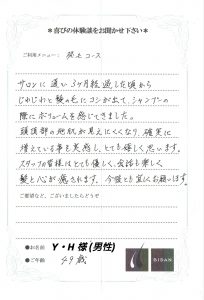 ＊喜びの体験談をお聞かせ下さい＊
ご利用メニュー： 発毛コース
サロンに通い3ヶ月経過した頃から
じわじわと髪の毛にコシが出て、シャンプーの
際にボリュームを感じてきました。
頭頂部の地肌が見えにくくなり、確実に
増えている事を実感し、とても嬉しく思います。
スタッフの皆様はとても優しく、会話も楽しく
髪と心が癒されます。今後とも宜しくお願いします。
ご要望など、ございましたらどうぞ
●お名前 Y・H 様(男性)
●ご年齢 49歳
BIDAN